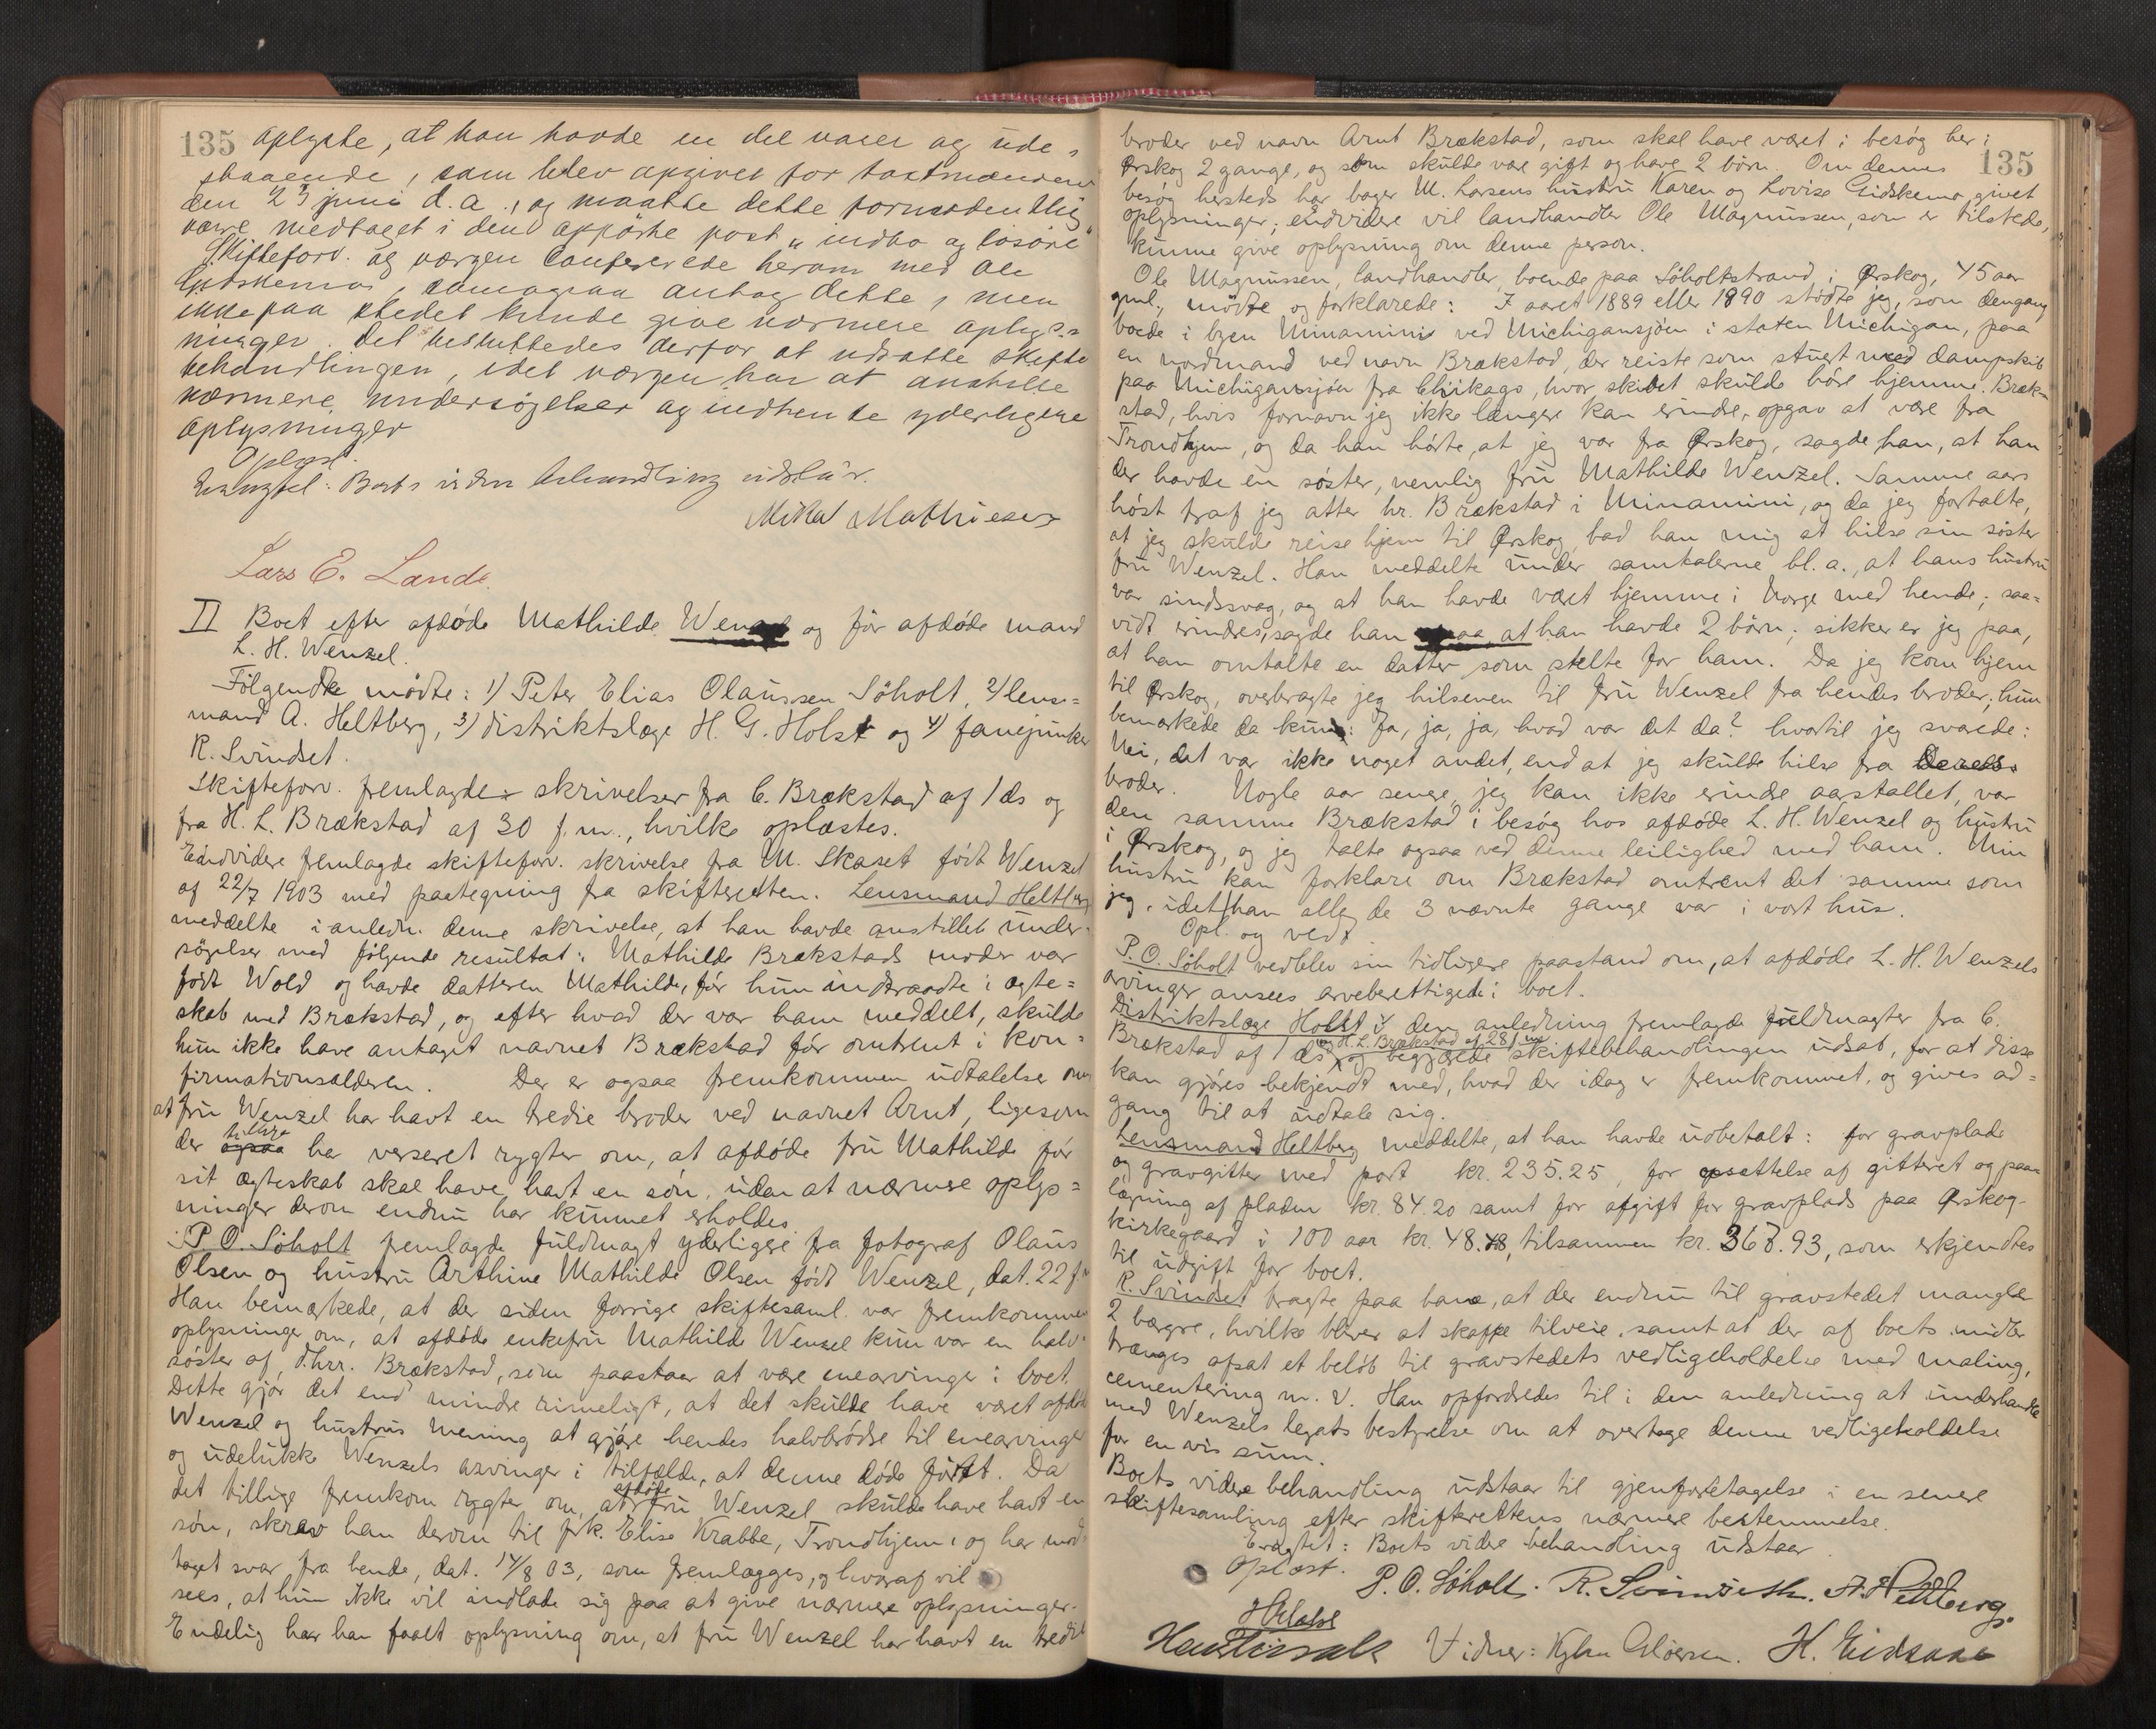 135
oplyste, at han havde en del varer og ude-
staaende, som blev opgivet for taxtmændene
den 23 juni d.a., og maatte dette formodentlig
være medtaget i den opførte post "indbo og løsøre"
Skifteforv. og værgen confererede herom med Ole
Gidskemo, som ogsaa antog dette, men
ikke paa stedet kunde give nærmere oplys-
ninger. Det besluttedes derfor at udsætte skifte
behandlingen, idet værgen har at anstille
nærmere undersøgelser og indhente yderligere
oplysninger
Oplæst.
Eragtet: Boets videre behandling udstaar.
Mikal Mathiesen
Lars E. Lande
II Boet efter afdøde Mathilde Wenzel og før afdøde mand
L. H. Wenzel.
Følgende mødte: 1) Peter Elias Olaussen Søholt, 2) lens=
mand A. Heltberg, 3) distriktslæge H. G. Holst og 4) fanejunker
R. Svindset.
Skifteforv. fremlagde skrivelser fra C. Brækstad af 1 ds og
fra H. L. Brækstad af 30 f.m., hvilke oplæstes.
Endvidere fremlagde skifteforv. skrivelse fra M. Skaset født Wenzel
af 22/7 1903 med paategning fra skifteretten. Lensmand Heltberg
meddelte i anledn. denne skrivelse, at han havde anstillet under-
søgelser med følgende resultat: Mathilde Brækstads moder var
født Wold og havde datteren Mathilde, før hun indtraadte i ægte=
skab med Brækstad, og efter hvad der var ham meddelt, skulde
hun ikke have antaget navnet Brækstad før omtrent i kon=
firmationsalderen. Der er ogsaa fremkommen udtalelse om
at fru Wenzel har havt en tredie broder ved navnet Arnt, ligesom
der ogsaa tillige har verseret rygter om, at afdøde fru Mathilde før
sit ægteskab skal have havt en søn, uden at nærmere oplys=
ninger derom endnu har kunnet erholdes.
P. O. Søholt fremlagde fuldmagt yderligere fra fotograf Olaus
Olsen og hustru Arthine Mathilde Olsen født Wenzel, dat. 22 f.m.
Han bemærkede, at der siden forrige skiftesaml. var fremkommen
oplysninger om, at afdøde enkefru Mathilde Wenzel kun var en halv-
søster af d'hrr. Brækstad, som paastaar at være enearvinger i boet.
Dette gjør det end mindre rimeligt, at det skulde have været afdøde
Wenzel og hustrus mening at gjøre hendes halvbrødre til enearvinger
og udelukke Wenzels arvinger i tilfælde, at denne døde først. Da
det tillige fremkom rygter om, at afdøde fru Wenzel skulde have havt en
søn, skrev han derom til frk. Elise Krabbe, Trondhjem, og har mod-
taget svar fra hende, dat. 14/8 03, som fremlægges, og hvoraf vil
sees, at hun ikke vil indlade sig paa at give nærmere oplysninger.
Endelig har han faaet oplysning om, at fru Wenzel har havt en tredie
135
broder ved navn Arnt Brækstad, som skal have været i besøg her i
Ørskog 2 gange, og som skulde være gift og have 2 børn. Om dennes
besøg hersteds har bager M. Larsens hustru Karen og Lovise Gidskemo givet
oplysninger; endvidere vil landhandler Ole Magnussen, som er tilstede,
kunne give oplysning om denne person.
Ole Magnussen, landhandler, boende paa Søholtstrand i Ørskog, 45 aar
gml., mødte og forklarede: I aaret 1889 eller 1890 stødte jeg, som dengang
boede i byen Minamini ved Michigansjøen i staten Michigan, paa
en nordmand ved navn Brækstad, der reiste som stuert med dampskib
paa Michigansjøen fra Chikago, hvor skibet skulde høre hjemme. Bræk-
stad, hvis fornavn jeg ikke længere kan erindre, opgav at være fra
Trondhjem, og da han hørte, at jeg var fra Ørskog, sagde han, at han
der havde en søster, nemlig fru Mathilde Wenzel. Samme aars
høst traf jeg atter hr. Brækstad i Minamini, og da jeg fortalte,
at jeg skulde reise hjem til Ørskog, bad han mig at hilse sin søster
fru Wenzel. Han meddelte under samtalerne bl.a., at hans hustru
var sindssvag, og at han havde været hjemme i Norge med hende; saa=
vidt erindres, sagde han at han havde 2 børn; sikker er jeg paa,
at han omtalte en datter som stelte for ham. Da jeg kom hjem
til Ørskog, overbragte jeg hilsenen til fru Wenzel fra hendes broder; hun
bemærkede da kun: Ja, ja, ja, hvad var det da? hvortil jeg svarede:
Nei, det var ikke noget andet, end at jeg skulde hilse fra Deres
broder. Nogle aar senere, jeg kan ikke erindre aarstallet, var
den samme Brækstad i besøg hos afdøde L. H. Wenzel og hustru
i Ørskog, og jeg talte ogsaa ved denne leilighed med ham. Min
hustru kan forklare om Brækstad omtrent det samme som
jeg, idet han alle de 3 nævnte gange var i vort hus.
Opl. og vedt.
P. O. Søholt vedblev sin tidligere paastand om, at afdøde L. H. Wenzels
arvinger ansees arveberettigede i boet.
Distriktslæge Holst i den anledning fremlagde fuldmagter fra C.
Brækstad af 1 ds og H. L. Brækstad af 28 f.m. og begjærede skiftebehandlingen udsat, for at disse
kan gjøres bekjendt med, hvad der idag er fremkommet, og gives ad=
gang til at udtale sig.
Lensmand Heltberg meddelte, at han havde udbetalt: for gravplade
og gravgitter med port kr. 235.25, for opsættelse af gitteret og paa=
lægning af pladen kr. 84.20 samt for afgift for gravplads paa Ørskog
kirkegaard i 100 aar kr. 48.48, tilsammen kr. 367.93, som erkjendtes
til udgift for boet.
R. Svindset bragte paa bane, at der endnu til gravstedet mangler
2 bægre, hvilke bliver at skaffe tilveie, samt at der af boets midler
trænges afsat et beløb til gravstedets vedligeholdelse med maling,
cementering m. v. Han opfordredes til i den anledning at underhandle
med Wenzels legats bestyrelse om at overtage denne vedligeholdelse
for en vis sum.
Boets videre behandling udstaar til gjenforetagelse i en senere
skiftesamling efter skifterettens nærmere bestemmelse.
Eragtet: Boets videre behandling udstaar.
Oplæst.
P. O. Søholt. R. Svindseth. A. Heltberg.
HGHolst
Vidner: H. Eidsaae